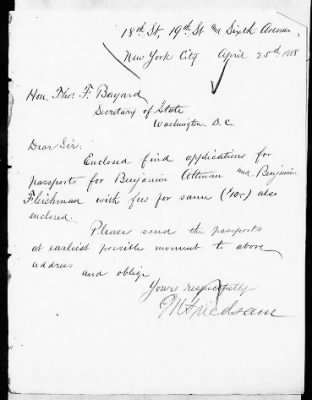 18th St, 19th St and Sixth Avenue
New York City April 25th 1888
Hon. Thos. F. Bayard
Secretary of State
Washington D.C
Dear Sir:
Enclosed find applications for
passports for Benjamin Altman and Benjamin
Fleishman with fees for same ($10.-) also
enclosed.
Please send the passports
at earliest possible moment to above
address
and oblige
Yours respectfully
M Friedsam